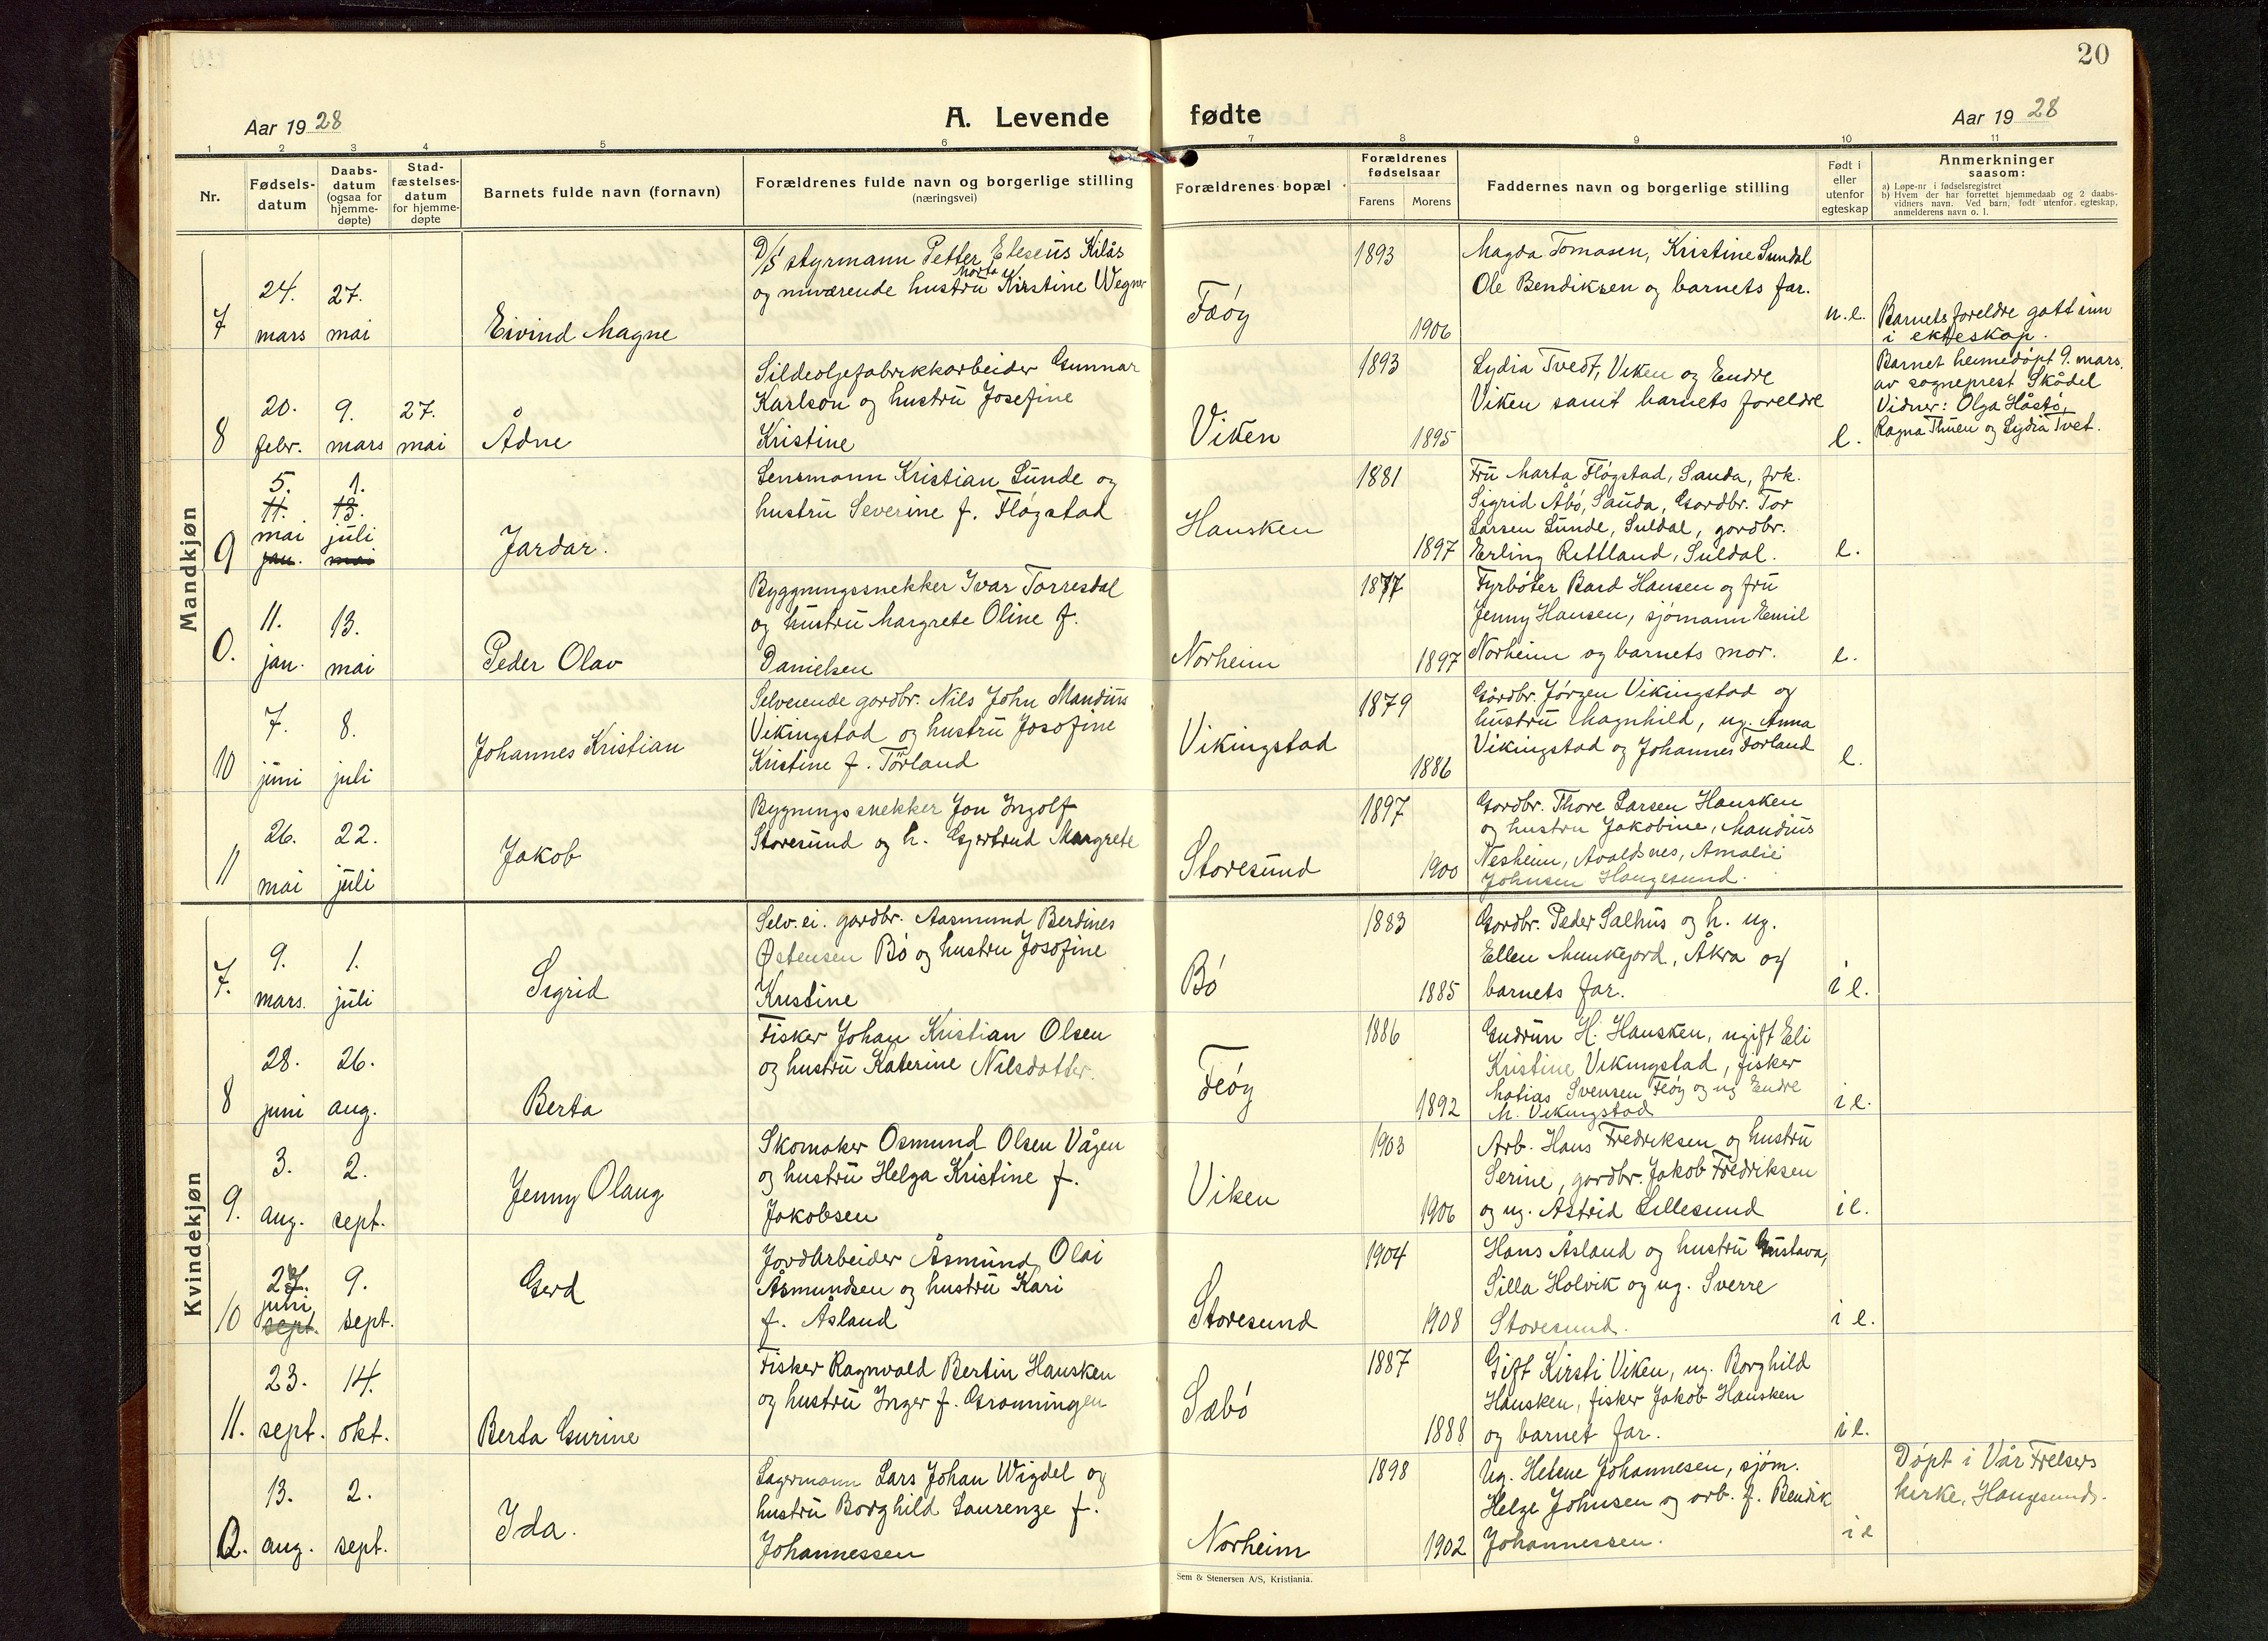 20
Aar 1928
A. Levende
fødte
Aar 1928
1 2 3 4 5 6 7 8 9 10 11
Nr.
Fødsels-
datum
Daabs-
datum
(ogsaa for
hjemme-
døpte)
Stad-
fæstelses-
datum
for hjemme-
døpte
Barnets fulde navn (fornavn)
Forældrenes fulde navn og borgerlige stilling
(næringsvei)
Forældrenes bopæl
Forældrenes
fødselsaar
Farens Morens
Faddernes navn og borgerlige stilling
Født i
eller
utenfor
egteskap
Anmerkninger
saasom:
a) Løpe-nr i fødselsregistret
b) Hvem der har forrettet hjemmedaab og 2 daabs-
vidners navn. Ved barn, født utenfor egteskap,
anmelderens navn o. l.
Mandkjøn
7
24.
mars
27.
mai
Eivind Magne
D/S styrmann Petter Eleseus Kilås
og nuværende hustru Marta Kirstine Wegner
Feøy
1893
1906
Magda Tomasen, Kristine Sundal
Ole Bendiksen og barnets far.
u.e.
Barnets foreldre gått inn
i ekteskap.
8
20.
febr.
9.
mars
27.
mai
Ådne
Sildeoljefabrikkarbeider Gunnar
Karlson og hustru Josefine
Kristine
Viken
1893
1895
Lydia Tvedt, Viken og Endre
Viken samt barnets foreldre
e.
Barnet heimedøpt 9. mars.
av sogneprest Skådel
Vidner: Olga Håstø,
Ragna Thuen og Lydia Tvet.
9
5.
11.
mai
jan.
1.
13.
juli
mai
Jardar.
Lensmann Kristian Sunde og
hustru Severine f. Fløgstad
Hausken
1881
1897
Fru Marta Fløgstad, Sauda, frk.
Sigrid Åbø, Sauda, Gardbr. Tor
Larsen Sunde, Suldal, gardbr.
Erling Rettland, Suldal.
e.
0.
11.
jan.
13.
mai
Peder Olav
Byggningssnekker Ivar Torresdal
og hustru Margrete Oline f.
Danielsen
Norheim
1877
1897
Fyrbøter Bard Hansen og fru
Jenny Hansen, sjømann Emil
Norheim og barnets mor.
e.
10
7.
juni
8.
juli
Johannes Kristian
Selveiende gardbr. Nils John Mandius
Vikingstad og hustru Josofine
Kristine f. Førland
Vikingstad
1879
1886
Gårdbr. Jørgen Vikingstad og
hustru Magnhild, ug. Anna
Vikingstad og Johannes Førland
e.
11
26.
mai
22.
juli
Jakob
Bygningssnekker Jon Ingolf
Storesund og h. Gjertrud Margrete
Storesund
1897
1900
Gardbr. Thore Larsen Hausken
og hustru Jakobine, Mandius
Nesheim, Avaldsnes, Amalie
Johnsen Haugesund.
Kvindekjøn
7.
9.
mars.
1.
juli
Sigrid
Selv.ei. gardbr. Aasmund Berdines
Østensen Bø og hustru Josofine
Kristine
Bø
1883
1885
Gardbr. Peder Salhus og h. ug.
Ellen Munkejord, Åkra og
barnets far.
i e.
8
28.
juni
26.
aug.
Berta
Fisker Johan Kristian Olsen
og hustru Katerine Nilsdatter.
Feøy
1886
1892
Gudrun H. Hausken, ugift Eli
Kristine Vikingstad, fisker
Matias Svensen Feøy og ug Endre
M. Vikingstad
i e.
9.
3.
aug.
2.
sept.
Jenny Olaug
Skomaker Osmund Olsen Vågen
og hustru Helga Kristine f.
Jakobsen
Viken
1903
1906
Arb. Hans Fredriksen og hustru
Serine, gardbr. Jakob Fredriksen
og ug. Astrid Lillesund
i e.
10
27.
juni
sept.
9.
sept.
Gerd
Jordarbeider Åsmund Olai
Åsmundsen og hustru Kari
f. Åsland
Storesund
1904
1908
Hans Åsland og hustru Gustava,
Silla Holvik og ug. Sverre
Storesund.
i e.
11.
23.
sept.
14.
okt.
Berta Gurine
Fisker Ragnvald Bertin Hausken
og hustru Inger f. Grønningen
Sæbø
1887
1888
Gift Kirsti Viken, ug. Borghild
Hausken, fisker Jakob Hausken
og barnet far.
i e.
13.
aug.
2.
sept.
Ida.
Lagermann Lars Johan Wigdel og
hustru Borghild Laurenze f.
Johannessen
Norheim
1898
1902
Ug. Helene Johannesen, sjøm.
Helge Johnsen og arb. f. Bendik
Johannessen.
i e
Døpt i Vår Frelsers
kirke, Haugesund.
Sem & Stenersen A/S, Kristiania.